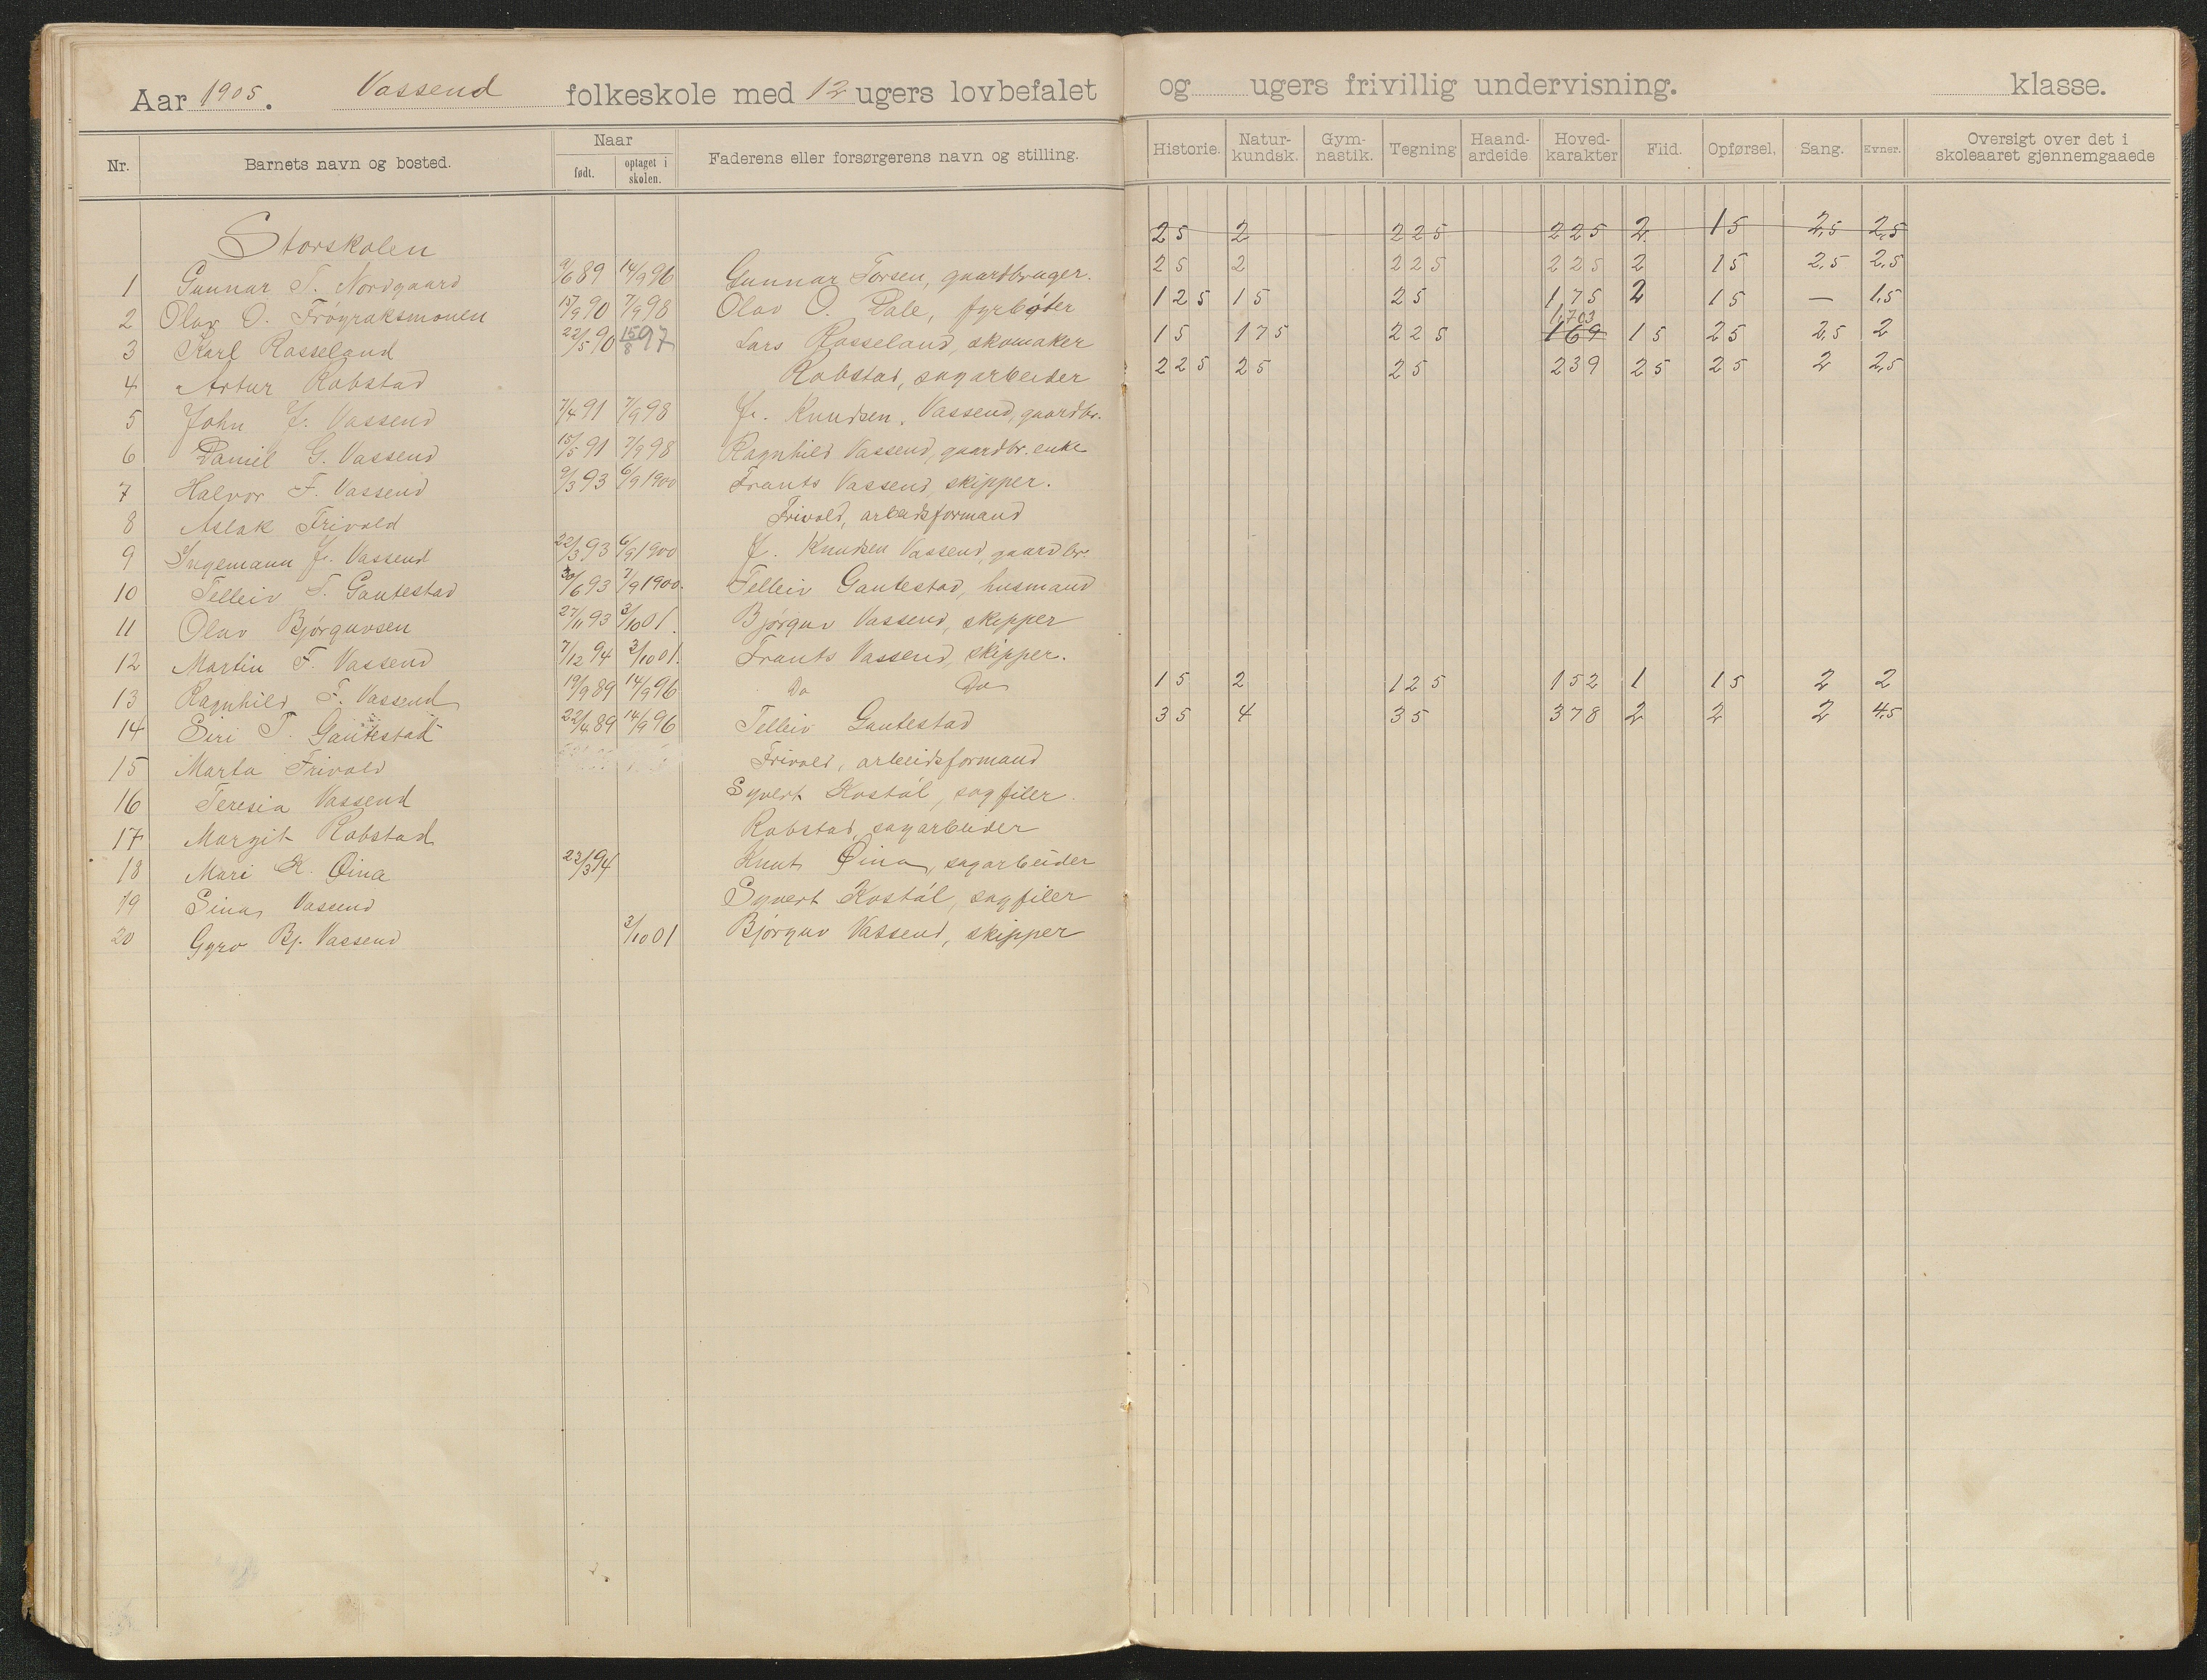 Aar 1905. Vassend folkeskole med 12 ugers lovbefalet og ugers frivillig undervisning. klasse.
Nr. Barnets navn og bosted. Naar født. optaget i skolen. Faderens eller forsørgerens navn og stilling. Historie. Natur-kundsk. Gym-nastik. Tegning Haand-arbeide Hoved-karakter Flid. Opførsel. Sang. Evner. Oversigt over det i skoleaaret gjennemgaaede
Storskolen 25 2 — 225 225 2 15 2,5 2,5
1 Gunnar T. Nordgaard 9/6 89 14/9 96 Gunnar Torsen, gaardbruger. 25 2 225 225 2 15 2,5 2,5
2 Olav O. Frøyraksmonen 15/9 90 7/9 98 Olav O. Dale, fyrbøter 125 15 25 175 2 15 — 1,5
3 Karl Rosseland 22/5 90 15/8 97 Lars Rosseland, skomaker 15 175 225 1,703 169 15 25 2,5 2
4 Artur Robstad Robstad, sagarbeider 225 25 25 239 25 25 2 2,5
5 John J. Vassend 7/4 91 7/9 98 J. Knudsen Vassend, gaardbr.
6 Daniel G. Vassend 15/5 91 7/9 98 Ragnhild Vassend, gaardbr. enke
7 Halvor F. Vassend 9/3 93 6/9 1900 Frants Vassend, skipper.
8 Aslak Frivold Frivold, arbeidsformand
9 Ingemann J. Vassend 22/3 93 6/9 1900 J. Knudsen Vassend, gaardbr.
10 Telleiv T. Gautestad 30/6 93 7/9 1900. Telleiv Gautestad, husmand
11 Olav Bjørguvsen 27/11 93 3/10 01. Bjørguv Vassend, skipper
12 Martin F. Vassend 7/12 94 3/10 01. Frants Vassend, skipper.
13 Ragnhild F. Vassend 19/9 89 14/9 96 Do Do 15 2 125 152 1 15 2 2
14 Siri T. Gautestad 22/4 89 14/9 96 Telleiv Gautestad 35 4 35 378 2 2 2 4,5
15 Marta Frivold Frivold, arbeidsformand
16 Teresia Vassend Syvert Kostøl, sagfiler.
17 Margit Robstad Robstad, sagarbeider
18 Mari K. Øina 23/3 94 Knut Øina, sagarbeider
19 Sina Vassend Syvert Kostøl, sagfiler
20 Gyro Bj. Vassend 3/10 01 Bjørguv Vassend, skipper